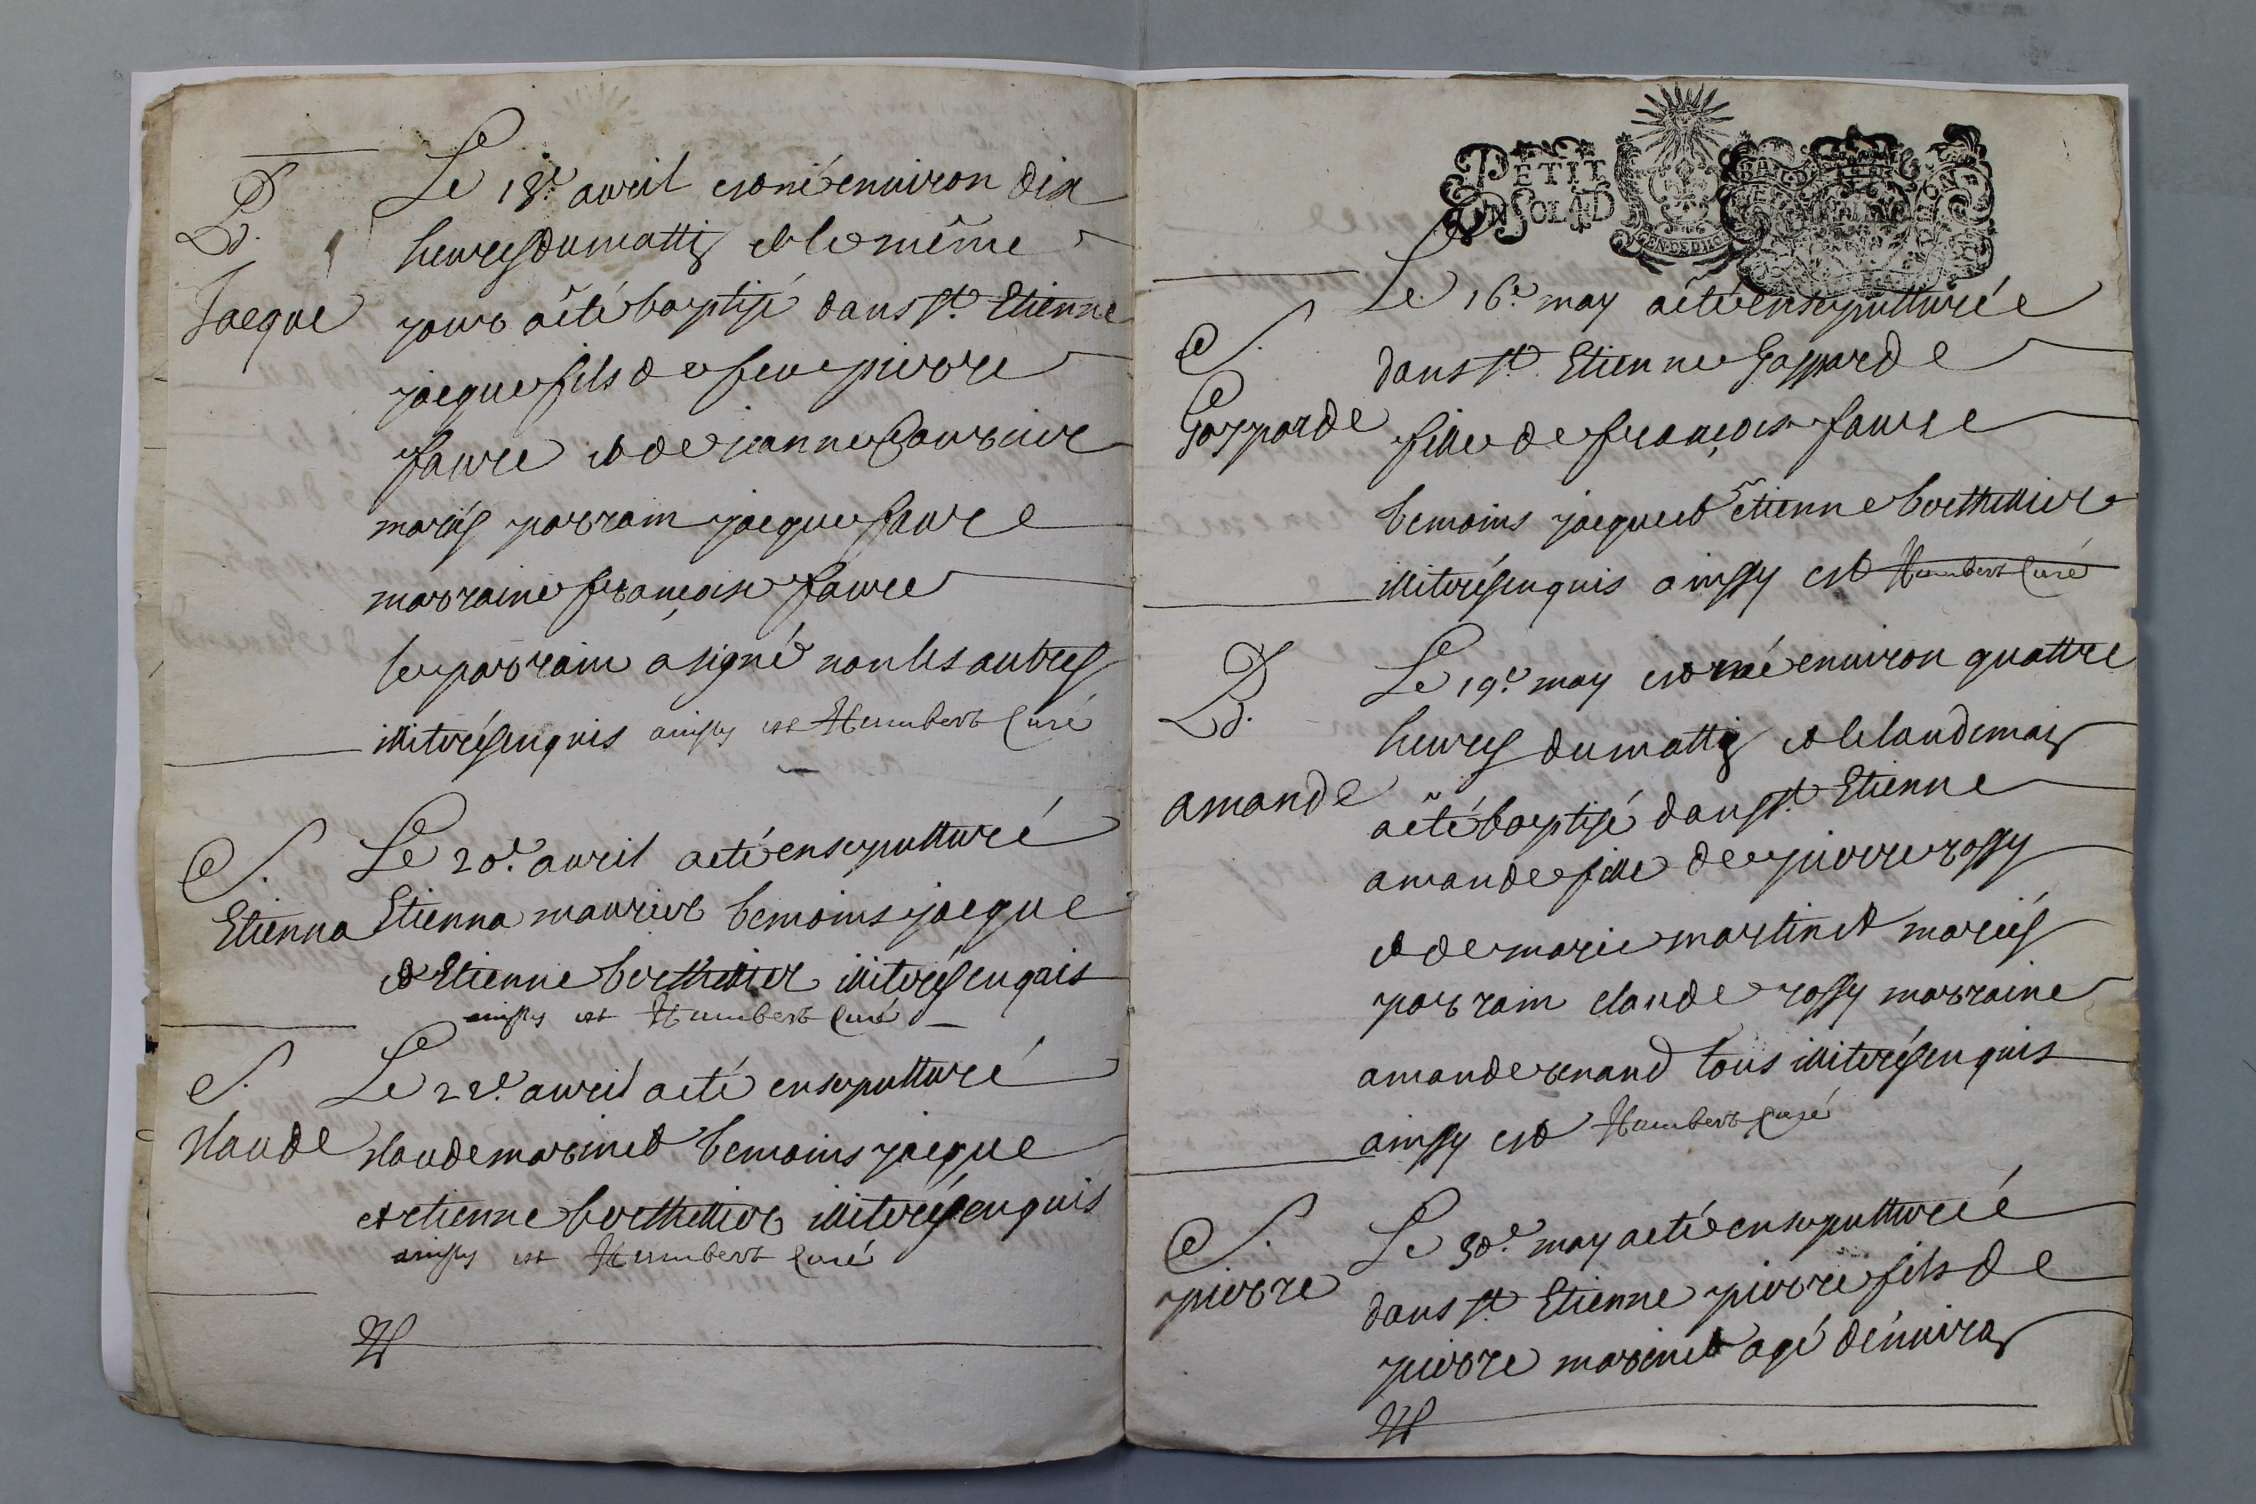 B.
Jacque
Le 18e. avril est né environ dix
heures du mattin et le même
jour a été baptisé dans st. Etienne
jacque fils de feu pierre
faure et de jeanne
mariés parrain jacque faure
marraine françoise faure
le parrain a signé non les autres
illiterés enquis ainssy est Humbert Curé
S.
Etienna
Le 20e. avril a eté ensepulturé
Etienna maurier temoins jacque
et Etienne berthellier illiterés enquis
ainssy est Humbert Curé
S.
Claude
Le 22e. avril a eté ensepulturé
Claude martinet temoins jacque
et etienne berthellier illiterés enquis
ainssy est Humbert Curé
PETIT
UN SOL 4 D
GEN DE DHO
Le 16e. may a été ensepulturée
S.
Gasparde
dans st. Etienne Gasparde
fille de françois faure
temoins jacque et etienne berthellier
illiterés enquis ainssy est Humbert Curé
B.
amande
Le 19e. may est né environ quattre
heures du mattin et le landemain
a été baptisé dans st. Etienne
amande fille de pierre rossy
et de marie martinet mariés
parrain claude rossy marraine
amande renand tous illiterés enquis
ainssy est Humbert Curé
S.
pierre
Le 30e. may a eté ensepulturé
dans st. Etienne pierre fils de
pierre martinet agé d'environ